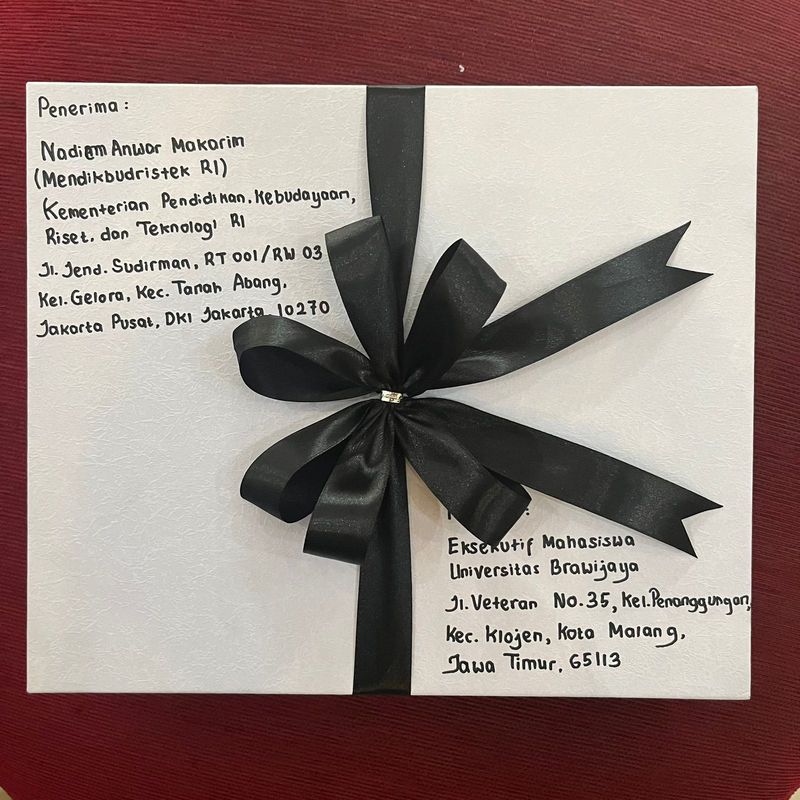 Penerima :
Nadiem Anwar Makarim
(Mendikbudristek RI)
Kementerian Pendidikan, Kebudayaan,
Riset, dan Teknologi RI
Jl. Jend. Sudirman, RT 001/RW 03
Kel. Gelora, Kec. Tanah Abang,
Jakarta Pusat, DKI Jakarta, 10270
Eksekutif Mahasiswa
Universitas Brawijaya
Jl. Veteran No. 35, Kel. Penanggungan,
Kec. Klojen, Kota Malang,
Jawa Timur, 65113